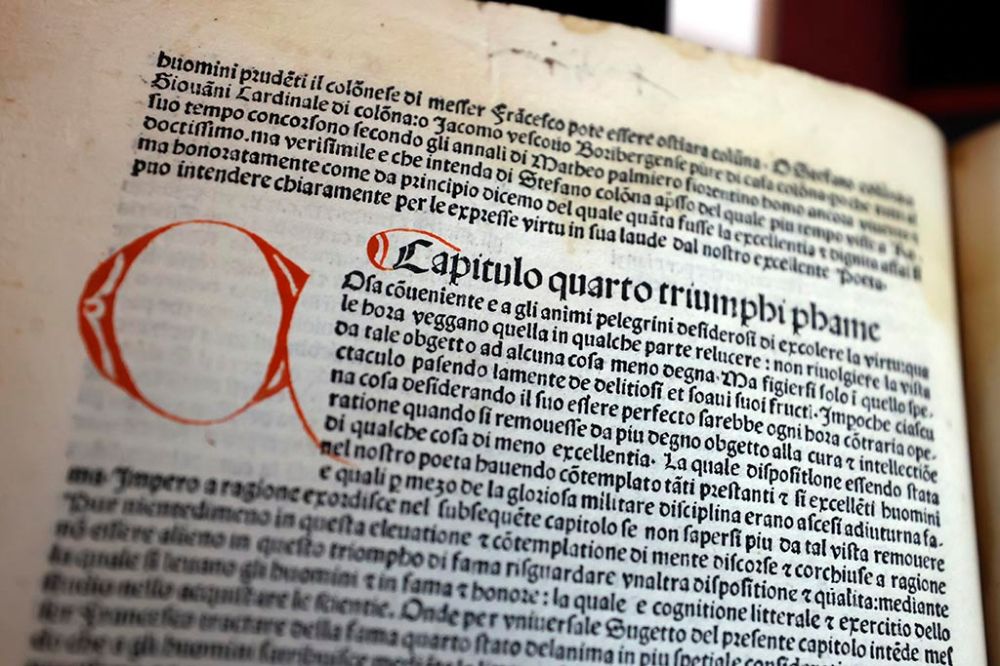 huomini prudẽti il colõnese di messer Frãcesco pote essere ostiara colũna. O
Giouãni Cardinale di colõna: o Jacomo vescouo Boribergense pure di casa colõna
suo tempo concorsono secondo gli annali di Matheo palmiero fiorentino homo ancora
doctissimo. ma verisimile e che intenda di Stefano colõna aþsso del quale piu tempo visse
ma honoratamente come da principio dicemo del quale quãta fusse la excellentia ⁊ dignita assai si
puo intendere chiaramente per le expresse virtu in sua laude dal nostro excellente Poeta.
Capitulo quarto triumphi phame
Q
Osa cõueniente e a gli animi pelegrini desiderosi di excolere la virtu: qua
le hora veggano quella in qualche parte relucere: non riuolgiere la vista
da tale obgetto ad alcuna cosa meno degna. Ma figiersi solo i quello spe-
ctaculo pasendo lamente de delitiosi et soaui suoi fructi. Impoche ciascu
na cosa desiderando il suo essere perfecto sarebbe ogni hora cõtraria ope-
ratione quando si remouesse da piu degno obgetto alla cura ⁊ intellectiõe
di qualche cosa di meno excellentia. La quale dispositione essendo stata
nel nostro poeta hauendo cõtemplato tãti prestanti ⁊ si excellẽti buomini
e quali ꝑ mezo de la gloriosa militare disciplina erano ascesi a diuturna fa-
ma. Impero a ragione exordisce nel subsequẽte capitolo se non sapersi piu da tal vista remouere
Pur nientedimeno in questa eleuatione ⁊ cõtemplatione di mente discorse ⁊ corchiuse a ragione
nõ essere alieno in questo triompho di fama risguardare vnaltra dispositione ⁊ qũalita: mediante
la quale si leuano gli huomini ⁊ in fama ⁊ honore: la quale e cognitione litterale ⁊ exercitio dello
studio nello acquistare le scientie. Onde per vniuersale Sugetto del presente capitolo intẽde mes
ser Francesco tractare della fama quarto stato delanima in piu spetiale